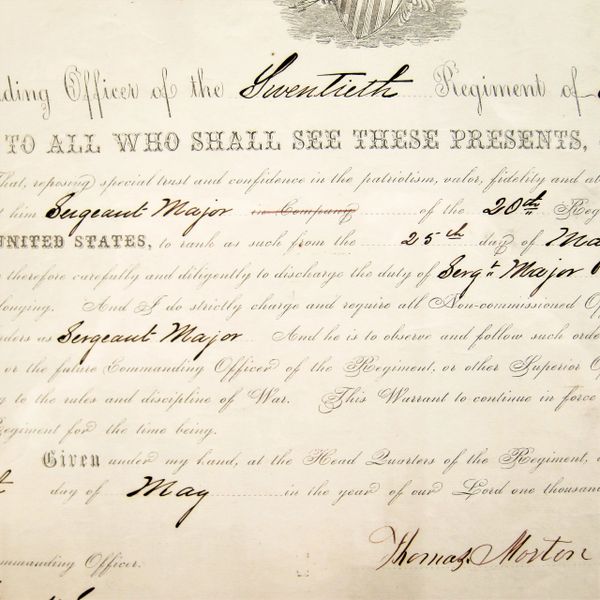 ding Officer of the Twentieth Regiment of
TO ALL WHO SHALL SEE THESE PRESENTS,
That, reposing special trust and confidence in the patriotism, valor, fidelity and ab
t him Sergeant Major in Company of the 20th Reg
UNITED STATES, to rank as such from the 25th day of Ma
therefore carefully and diligently to discharge the duty of Sergt Major
longing. And I do strictly charge and require all Non-commissioned Of
ders as Sergeant Major And he is to observe and follow such orde
or the future Commanding Officer of the Regiment, or other Superior O
g to the rules and discipline of War. This Warrant to continue in force
Regiment for the time being.
Given under my hand, at the Head Quarters of the Regiment,
day of May in the year of our Lord one thousand
mmanding Officer.
Thomas Morton